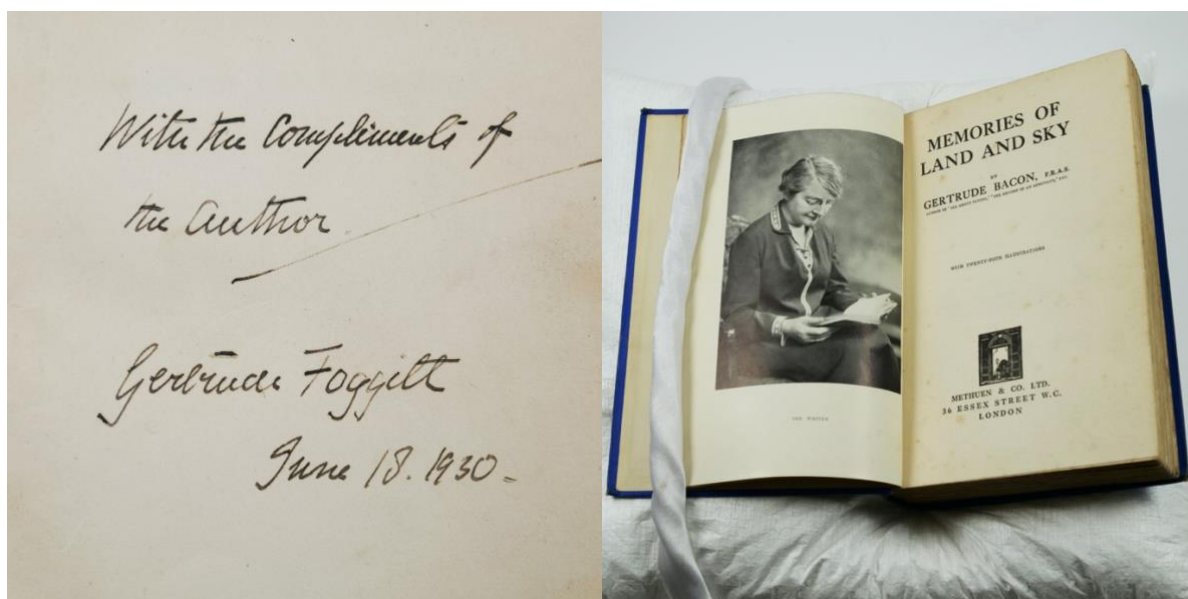 With the Compliments of
the Author
Gertrude Foggitt
June 18. 1930.
THE WRITER
MEMORIES OF
LAND AND SKY
BY
GERTRUDE BACON, F.R.A.S.
WITH TWENTY-FOUR ILLUSTRATIONS
METHUEN & CO. LTD.
36 ESSEX STREET W.C.
LONDON